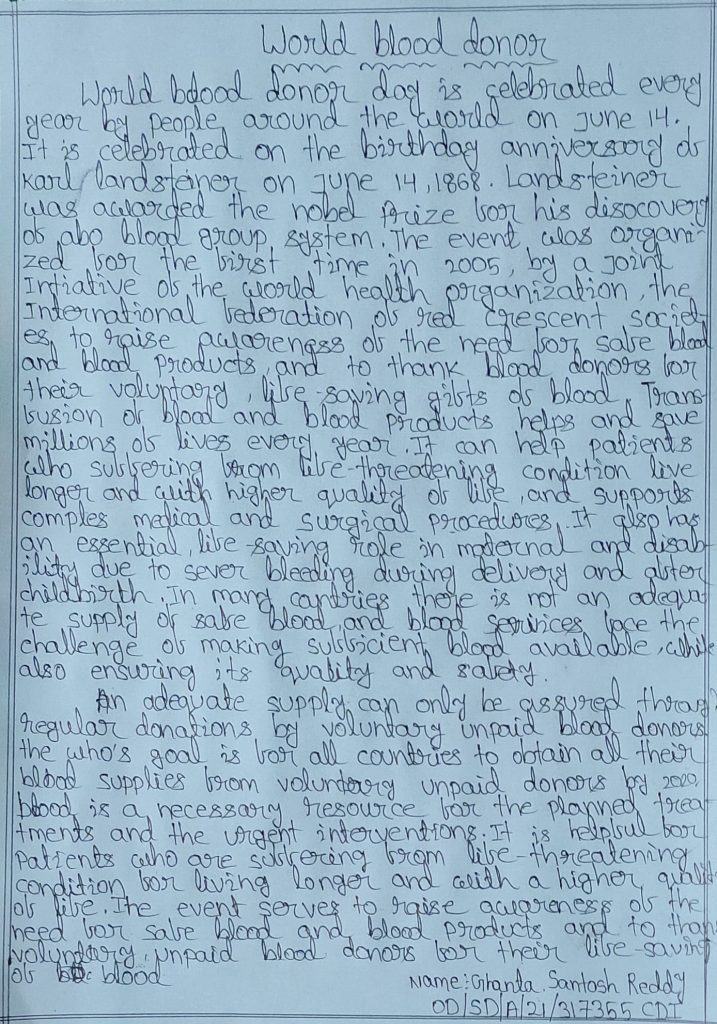 World blood donor
World blood donor day is celebrated every
year by people around the world on June 14.
It is celebrated on the birthday anniversary of
Karl landsteiner on June 14, 1868. Landsteiner
was awarded the nobel Prize for his disocovery
of abo blood group system. The event was organi-
zed for the first time in 2005, by a joint
Intiative of the world health organization, the
International federation of red crescent societ-
es, to raise awareness of the need for safe blood
and blood products, and to thank blood donors for
their voluntary, life-saving gifts of blood. Trans-
fusion of blood and blood products helps and save
millions of lives every year. It can help patients
who suffering from life-threatening condition live
longer and with higher quality of life, and supports
comples medical and surgical procedures. It also has
an essential, life saving role in maternal and disab-
ility due to sever bleeding during delivery and after
childbirth. In many cantries there is not an adequa-
te supply of safe blood, and blood services face the
challenge of making sufficient blood available, while
also ensuring its quality and safety.
An adequate supply can only be assured throug
regular donations by voluntary unpaid blood donors
the who's goal is for all countries to obtain all their
blood supplies from voluntary unpaid donors by 2020,
blood is a necessary resource for the planned trea-
tments and the urgent interventions. It is helpful for
Patients who are suffering from life-threatening
condition for living longer and with a higher qualit
of life. The event serves to raise awareness of the
need for safe blood and blood products and to than
voluntary, unpaid blood donors for their life-saving
of blood
Name: Ghanta. Santosh Reddy
OD/SD/A/21/317355 CDI